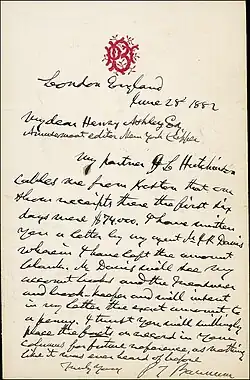 London England
June 28th 1882
My dear Henry Ashley Esq
Amusement editor New York Clipper
My partner J L Hutchinson
cables me from Boston that our
show receipts there the first six
days were $74000. I have written
you a letter by my agent Mr J R Davis
wherein I have left the amount
blank. Mr Davis will see my
account books and the Treasurer
and book-keeper and will insert
in my letter the exact amount to
a penny. I trust you will willingly
place the facts on record in your
columns for future reference, as nothing
like it was ever heard of before
Truly yours
P. T. Barnum